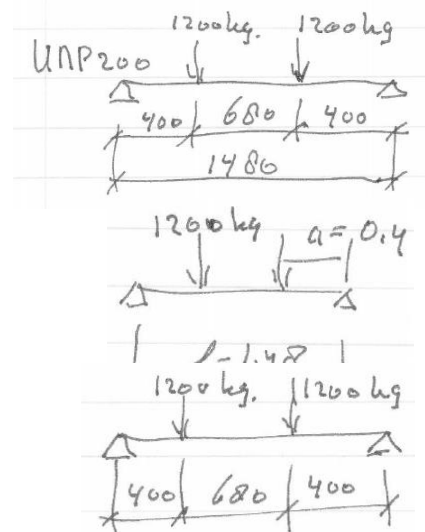 1200kg. 1200kg
UNP200
400 680 400
1480
1200kg a=0.4
l=1.48
1200kg. 1200kg
400 680 400